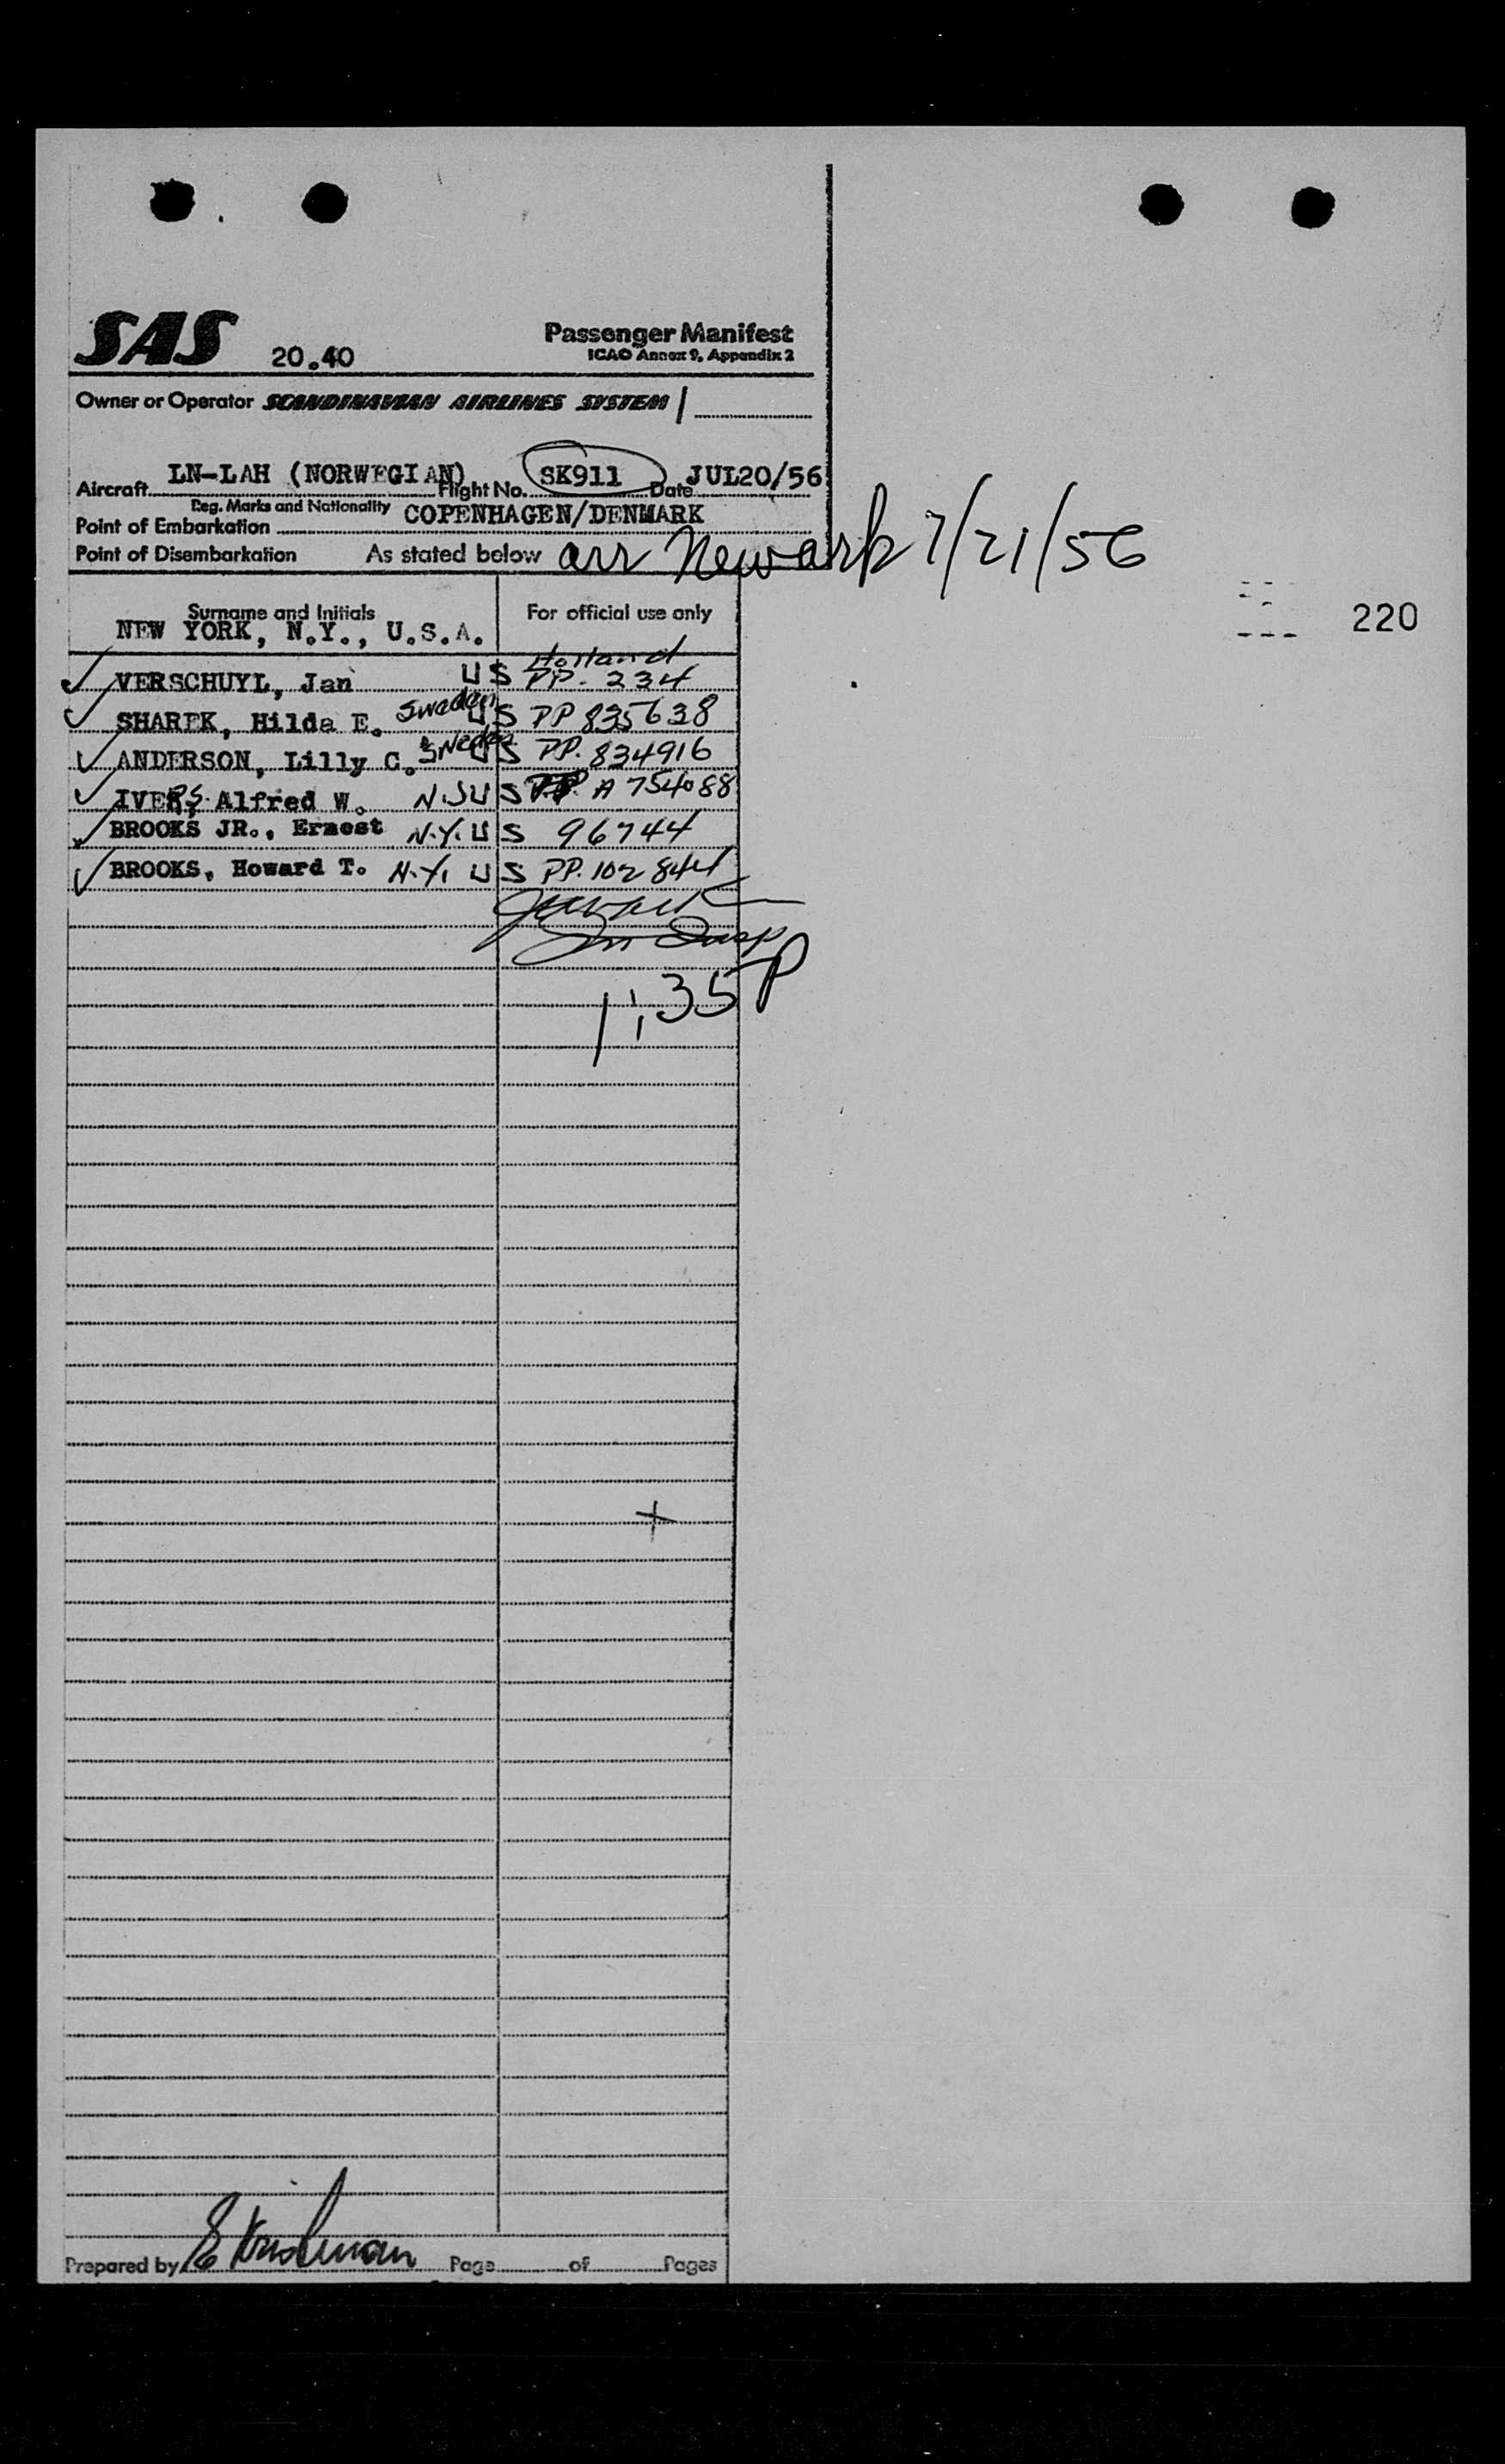 SAS 20.40 Passenger Manifest
ICAO Annex 9, Appendix 2
Owner or Operator SCANDINAVIAN AIRLINES SYSTEM
Aircraft LN-LAH (NORWEGIAN) Flight No. SK911 Date JUL20/56
Reg. Marks and Nationality
Point of Embarkation COPENHAGEN/DENMARK
Point of Disembarkation As stated below arr Newark 7/21/56
Surname and Initials For official use only
NEW YORK, N.Y., U.S.A.
220
Holland
VERSCHUYL, Jan US PP. 234
SHAREK, Hilda E. Sweden US PP 835638
ANDERSON, Lilly C. Sweden US PP. 834916
IVERS Alfred W. N.J US PP. A 754088
BROOKS JR., Ernest N.Y. US 96744
BROOKS, Howard T. N.Y. US PP. 102844
Im Insp
1:35P
Prepared by Page of Pages